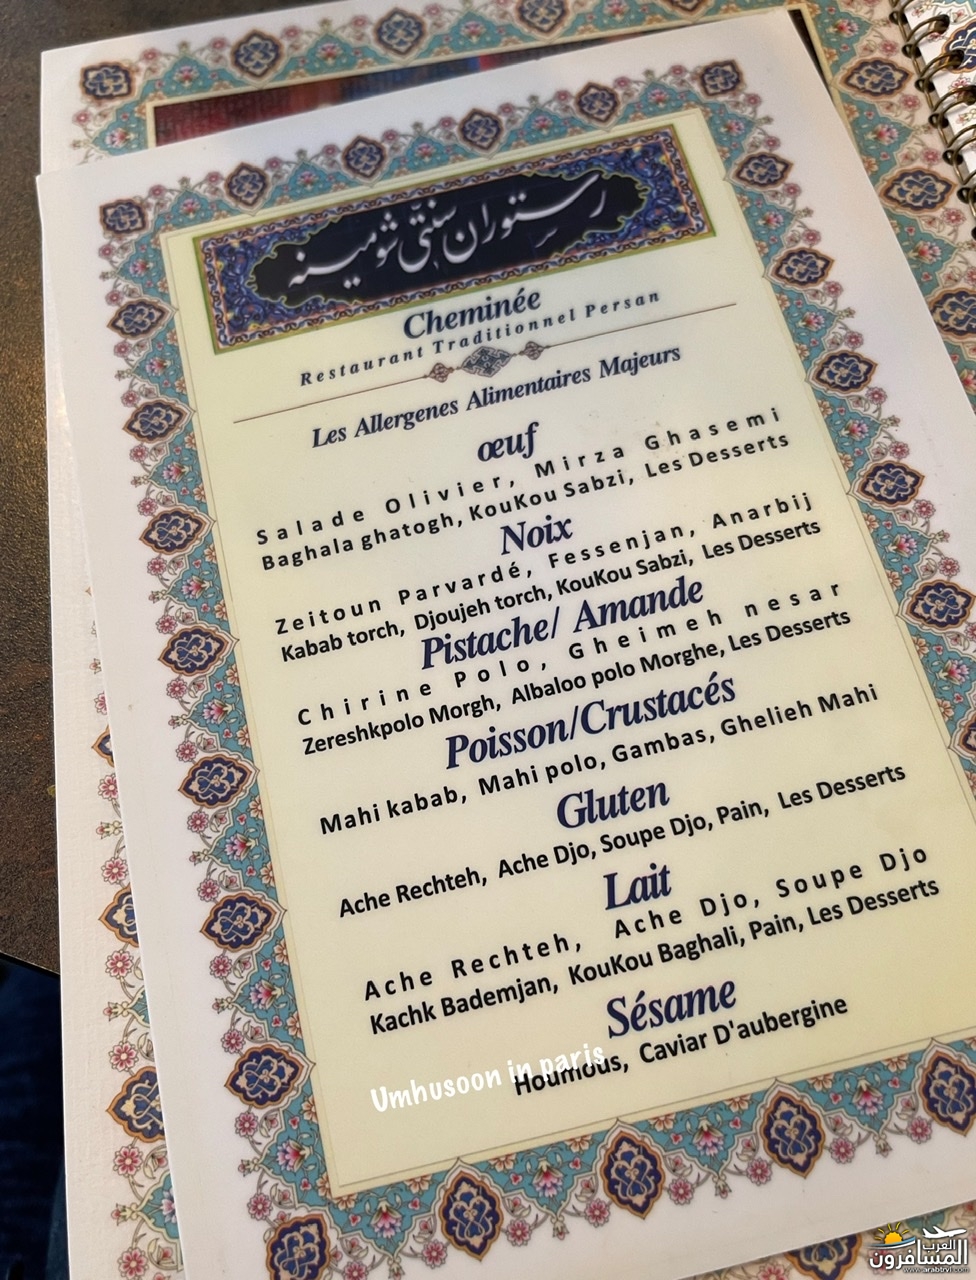 رستوران سنتی شومینه
Cheminée
Restaurant Traditionnel Persan
Les Allergenes Alimentaires Majeurs
œuf
Salade Olivier, Mirza Ghasemi
Baghala ghatogh, KouKou Sabzi, Les Desserts
Noix
Zeitoun Parvardé, Fessenjan, Anarbij
Kabab torch, Djoujeh torch, KouKou Sabzi, Les Desserts
Pistache/ Amande
Chirine Polo, Gheimeh nesar
Zereshkpolo Morgh, Albaloo polo Morghe, Les Desserts
Poisson/Crustacés
Mahi kabab, Mahi polo, Gambas, Ghelieh Mahi
Gluten
Ache Rechteh, Ache Djo, Soupe Djo, Pain, Les Desserts
Lait
Ache Rechteh, Ache Djo, Soupe Djo
Kachk Bademjan, KouKou Baghali, Pain, Les Desserts
Sésame
Houmous, Caviar D'aubergine
Umhusoon in paris
العرب
المسافرون
www.arabtrvl.com